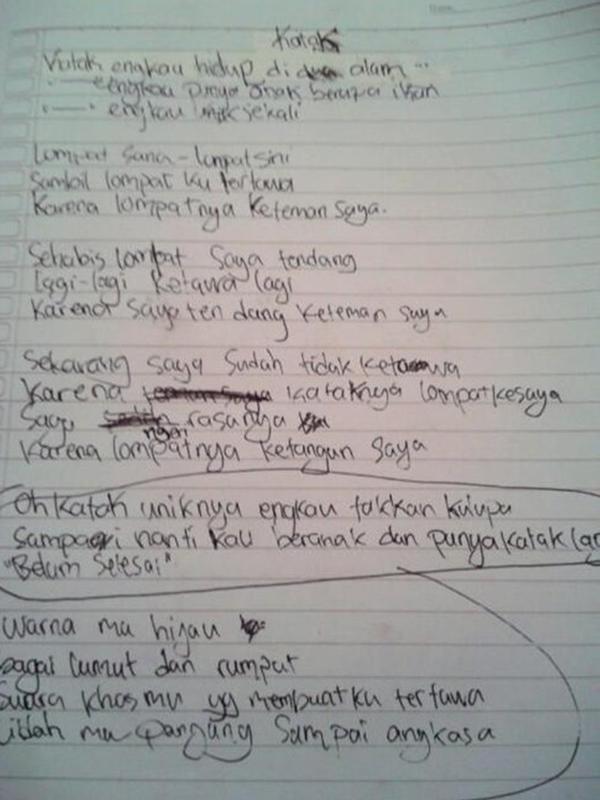 Katak
Katak engkau hidup di alam ...
engkau punya anak berupa ikan
engkau unik sekali
Lompat sana - lompat sini
Sambil lompat ku tertawa
Karena lompatnya Keteman saya.
Sehabis lompat saya tendang
lagi-lagi Ketawa lagi
Karena saya tendang Keteman saya
Sekarang saya sudah tidak Ketawa
Karena Kataknya lompatkesaya
Saya ngeri rasanya
Karena lompatnya Ketangan saya
Oh Katak uniknya engkau takkan Kulupa
Sampai nanti Kau beranak dan punya katak lag
"Belum Selesai"
Warna mu hijau
bagai lumut dan rumput
Suara khasmu yg membuatku tertawa
lidah mu panjang sampai angkasa